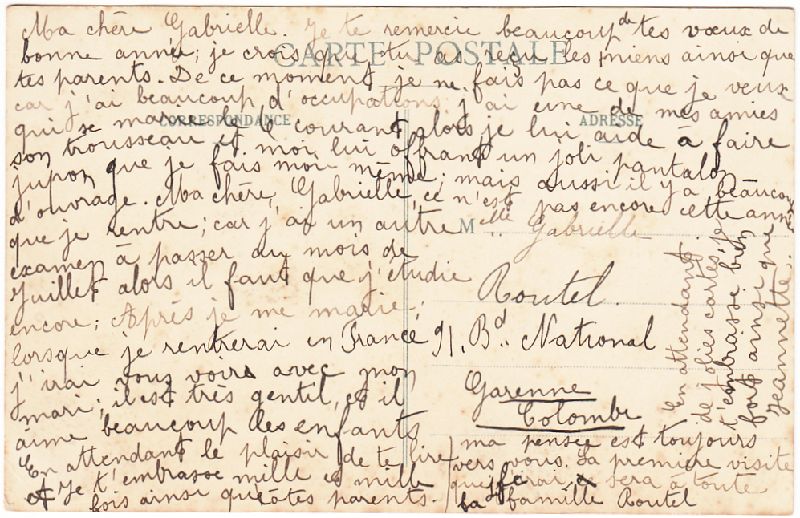 Ma chère Gabrielle. Je te remercie beaucoup de tes vœux de
bonne année; je crois que tu as reçu les miens ainsi que
CARTE POSTALE
tes parents. De ce moment je ne fais pas ce que je veux
car j'ai beaucoup d'occupations; j'ai une de mes amies
CORRESPONDANCE
ADRESSE
qui se marie le 16 courant alors je lui aide à faire
son trousseau et moi lui offrant un joli pantalon
jupon que je fais moi même; mais aussi il y a beaucoup
d'ouvrage. Ma chère Gabrielle, ce n'est pas encore cette année
que je rentre; car j'ai un autre
examen à passer au mois de
Juillet alors il faut que j'étudie
encore; Après je me marie;
lorsque je rentrerai en France
j'irai vous voir avec mon
mari; il est très gentil, et il
aime beaucoup les enfants
En attendant le plaisir de te lire
et je t'embrasse mille et mille
fois ainsi qu'à tes parents.
Melle Gabrielle
Routel.
91. Bd. National
Garenne
Colombe
ma pensée est toujours
vers vous. La première visite
que je ferai, sera à toute
la famille Routel
En attendant
de jolies cartes, je
t'embrasse bien
fort ainsi que
Jeannette.